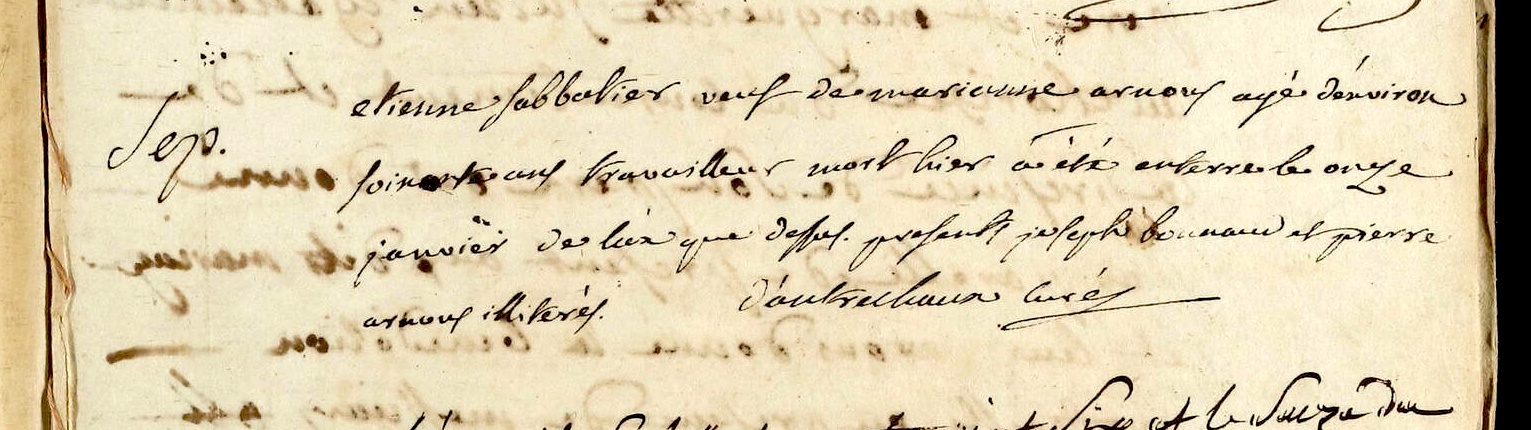 etienne sabbatier veuf de marianne arnoux agé d'environ
Sep.
soixante ans travailleur mort hier a été enterre le onze
janvier de l'an que dessus. presents joseph bonnaud et pierre
arnoux illiterés. d'autrechaux curé